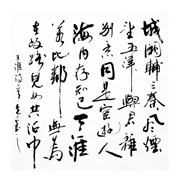 城闕輔三秦風煙
望五津與君離
別意同是宦遊人
海內存知己天涯
若比鄰無為
在歧路兒女共沾巾